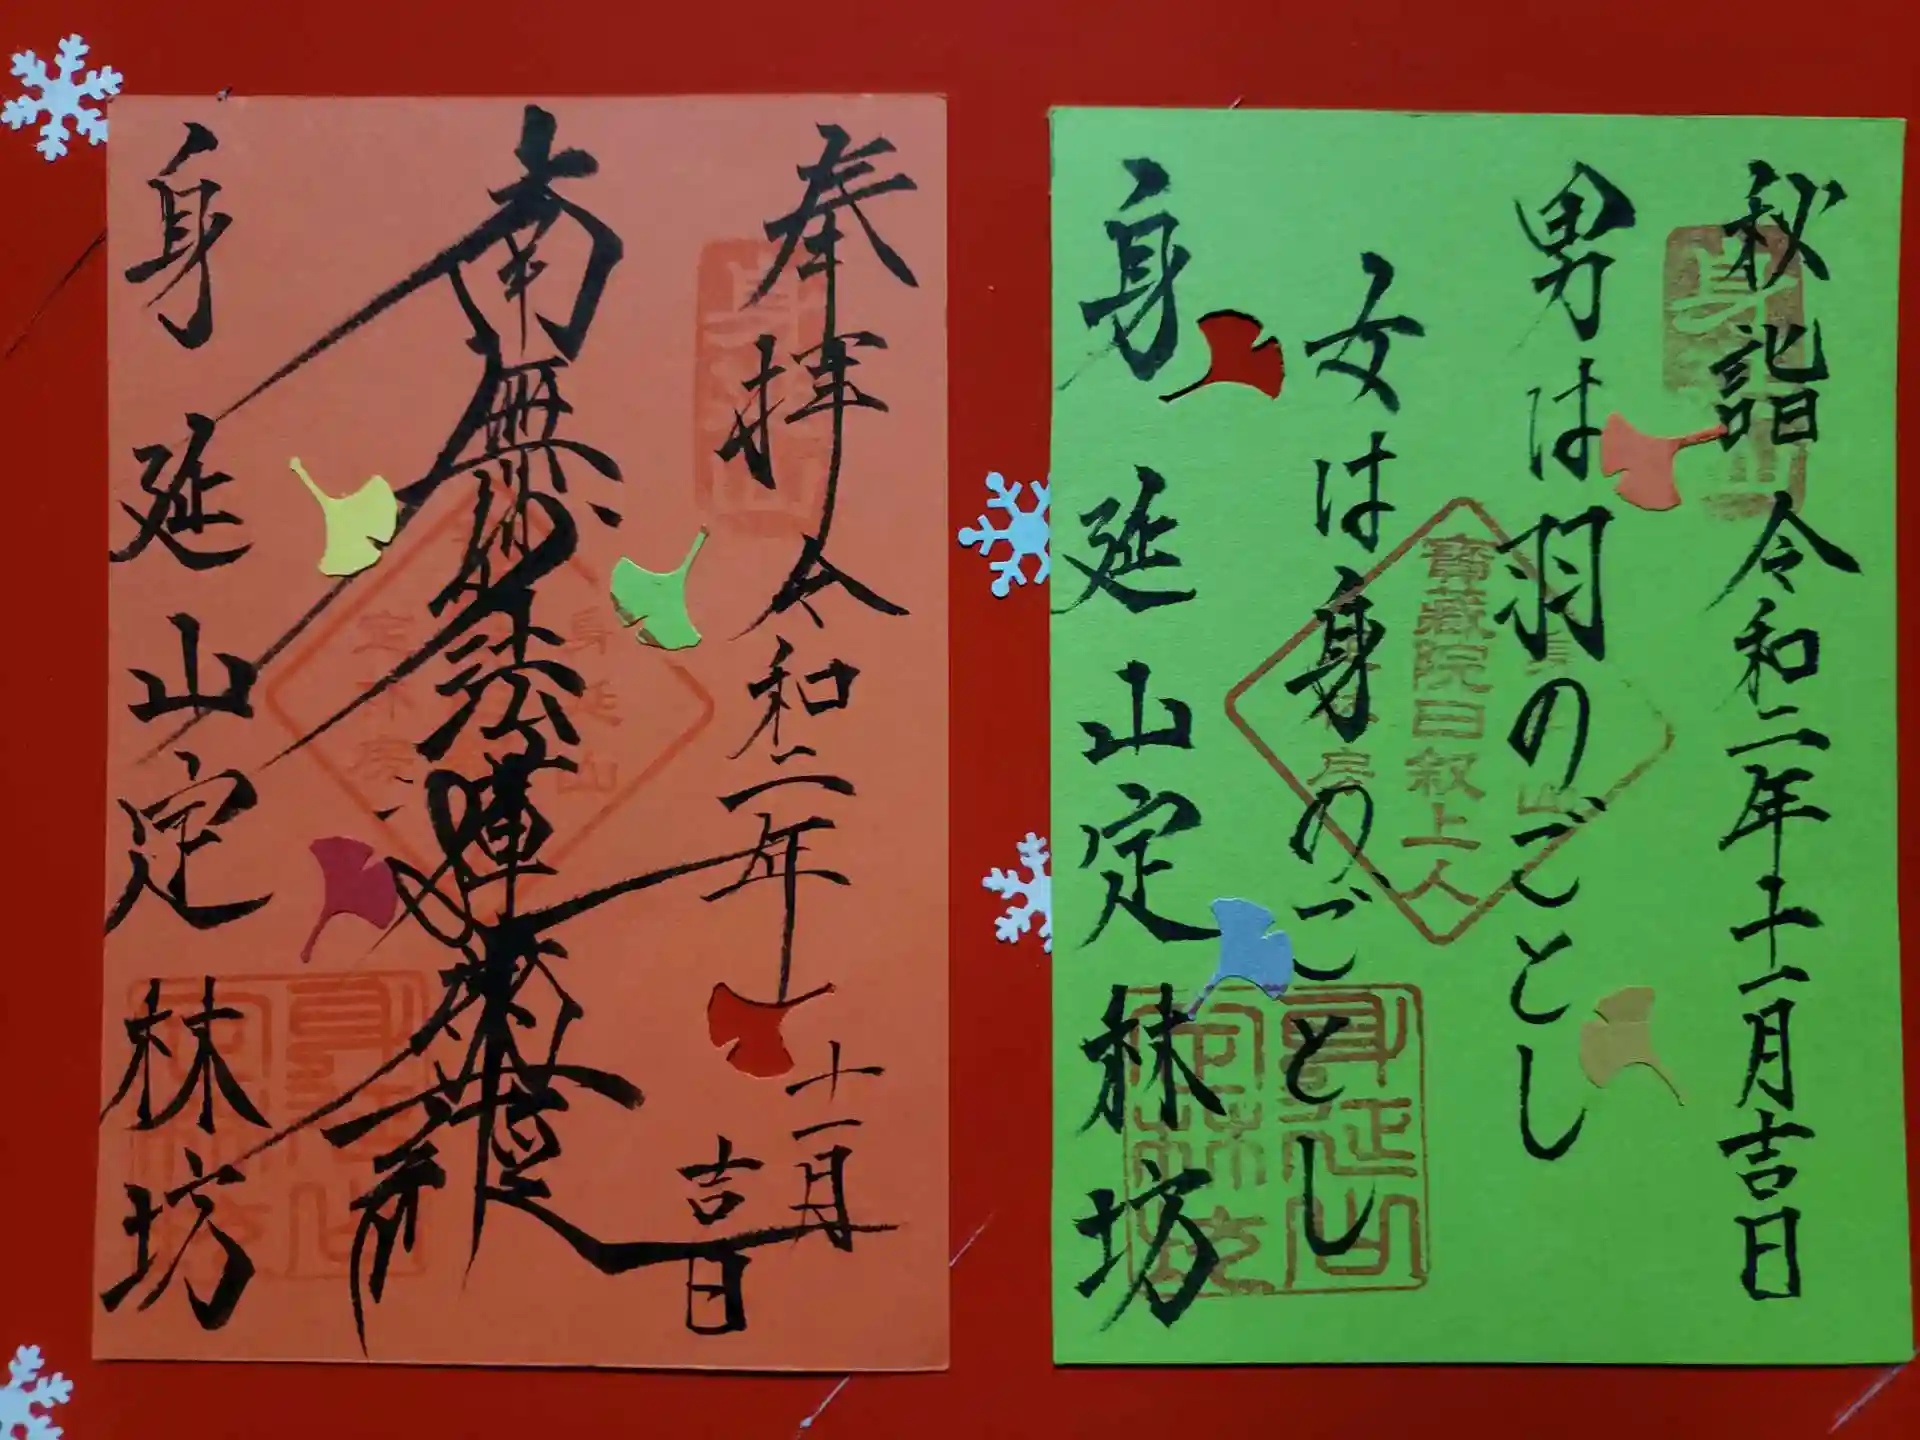 奉拝 令和二年
十一月
吉日
南無妙法蓮華経
身延山定林坊
身延山
定林房
秋詣 令和二年十一月吉日
男は羽のごとし
女は身のごとし
身延山定林坊
寳蔵院日叙上人
身延山
定林坊